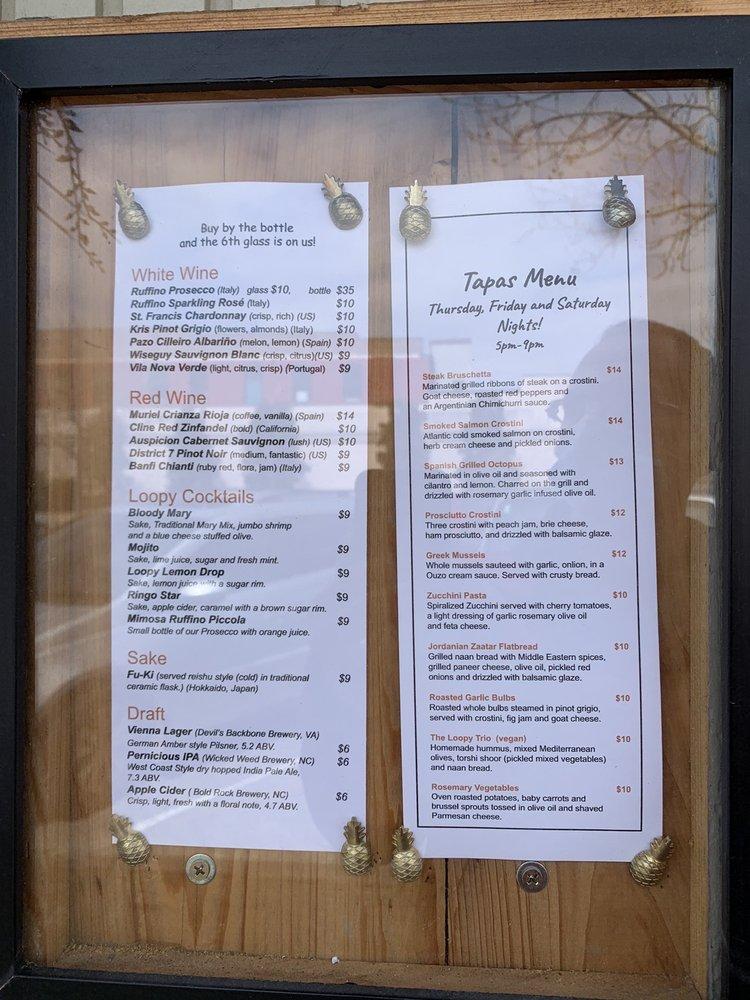 Buy by the bottle
and the 6th glass is on us!
White Wine
Ruffino Prosecco (Italy) glass $10, bottle $35
Ruffino Sparkling Rosé (Italy) $10
St. Francis Chardonnay (crisp, rich) (US) $10
Kris Pinot Grigio (flowers, almonds) (Italy) $10
Pazo Cilleiro Albariño (melon, lemon) (Spain) $10
Wiseguy Sauvignon Blanc (crisp, citrus)(US) $9
Vila Nova Verde (light, citrus, crisp) (Portugal) $9
Red Wine
Muriel Crianza Rioja (coffee, vanilla) (Spain) $14
Cline Red Zinfandel (bold) (California) $10
Auspicion Cabernet Sauvignon (lush) (US) $10
District 7 Pinot Noir (medium, fantastic) (US) $9
Banfi Chianti (ruby red, flora, jam) (Italy) $9
Loopy Cocktails
Bloody Mary $9
Sake, Traditional Mary Mix, jumbo shrimp
and a blue cheese stuffed olive.
Mojito $9
Sake, lime juice, sugar and fresh mint.
Loopy Lemon Drop $9
Sake, lemon juice with a sugar rim.
Ringo Star $9
Sake, apple cider, caramel with a brown sugar rim.
Mimosa Ruffino Piccola $9
Small bottle of our Prosecco with orange juice.
Sake
Fu-Ki (served reishu style (cold) in traditional $9
ceramic flask.) (Hokkaido, Japan)
Draft
Vienna Lager (Devil's Backbone Brewery, VA)
German Amber style Pilsner, 5.2 ABV. $6
Pernicious IPA (Wicked Weed Brewery, NC) $6
West Coast Style dry hopped India Pale Ale,
7.3 ABV.
Apple Cider ( Bold Rock Brewery, NC) $6
Crisp, light, fresh with a floral note, 4.7 ABV.
Tapas Menu
Thursday, Friday and Saturday
Nights!
5pm-9pm
Steak Bruschetta $14
Marinated grilled ribbons of steak on a crostini.
Goat cheese, roasted red peppers and
an Argentinian Chimichurri sauce.
Smoked Salmon Crostini $14
Atlantic cold smoked salmon on crostini,
herb cream cheese and pickled onions.
Spanish Grilled Octopus $13
Marinated in olive oil and seasoned with
cilantro and lemon. Charred on the grill and
drizzled with rosemary garlic infused olive oil.
Prosciutto Crostini $12
Three crostini with peach jam, brie cheese,
ham prosciutto, and drizzled with balsamic glaze.
Greek Mussels $12
Whole mussels sauteed with garlic, onion, in a
Ouzo cream sauce. Served with crusty bread.
Zucchini Pasta $10
Spiralized Zucchini served with cherry tomatoes,
a light dressing of garlic rosemary olive oil
and feta cheese.
Jordanian Zaatar Flatbread $10
Grilled naan bread with Middle Eastern spices,
grilled paneer cheese, olive oil, pickled red
onions and drizzled with balsamic glaze.
Roasted Garlic Bulbs $10
Roasted whole bulbs steamed in pinot grigio,
served with crostini, fig jam and goat cheese.
The Loopy Trio (vegan) $10
Homemade hummus, mixed Mediterranean
olives, torshi shoor (pickled mixed vegetables)
and naan bread.
Rosemary Vegetables $10
Oven roasted potatoes, baby carrots and
brussel sprouts tossed in olive oil and shaved
Parmesan cheese.